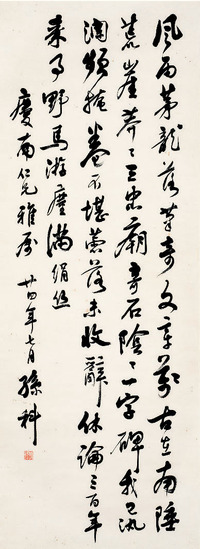 風雨茅龍落筆奇文章萬古在南陲
荒崖莽々三忠廟奇石陰々一字碑我已汎
瀾頻掩卷不堪落未收辭休論三百年
來事野馬游塵滿絹絲
慶仁兄雅屬 廿四年七月 孫科